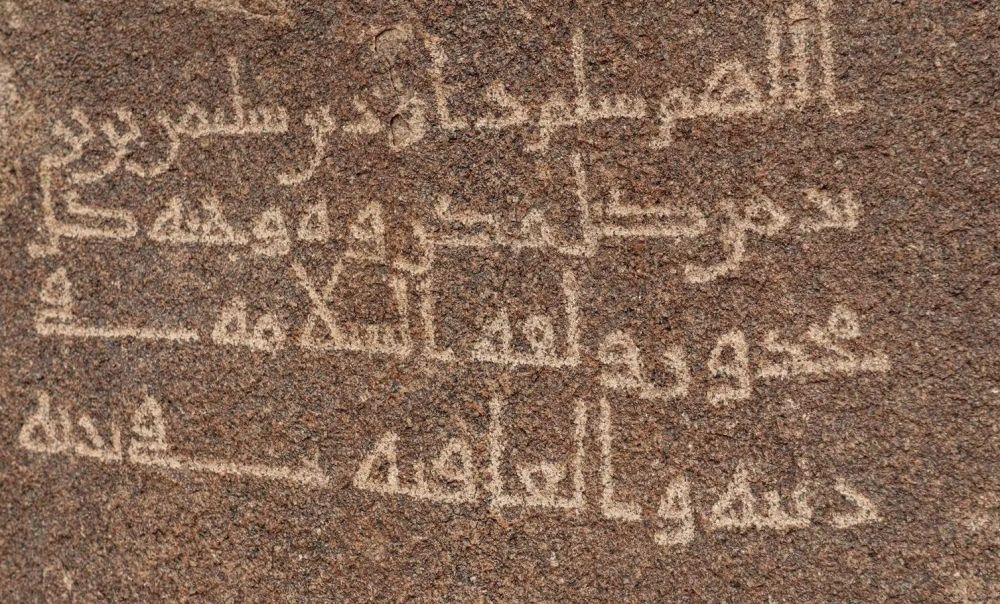 اللهم سلم داود بن سليمن بن يز
يد من كل مكروه وجنبه كل
محذور ولقه السلامه في
دينه والعافيه في بدنه